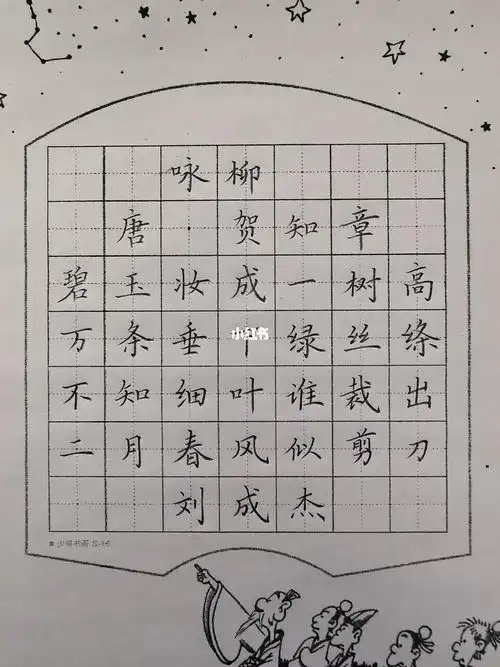 咏柳
唐·贺知章
碧玉妆成一树高
万条垂下绿丝绦
不知细叶谁裁出
二月春风似剪刀
刘成杰
小红书